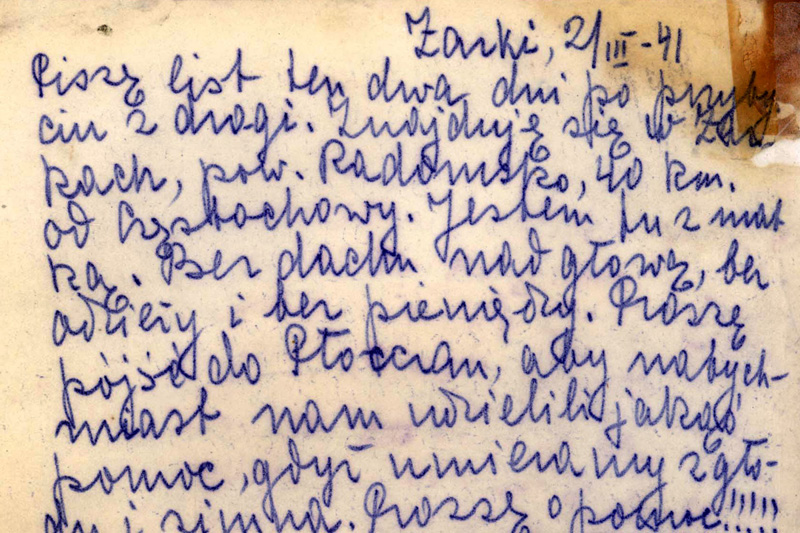 Żarki, 2/III-41
Piszę list ten dwa dni po przyby
ciu z drogi. Znajduję się w Żar
kach, pow. Radomsko, 40 km.
od Częstochowy. Jestem tu z mat
ką. Bez dachu nad głową, bez
odzieży i bez pieniędzy. Proszę
pójść do Płoccczan, aby natych-
miast nam udzielili jakąś
pomoc, gdyż umieramy z gło-
du i zimna. Proszę o pomoc!!!!!